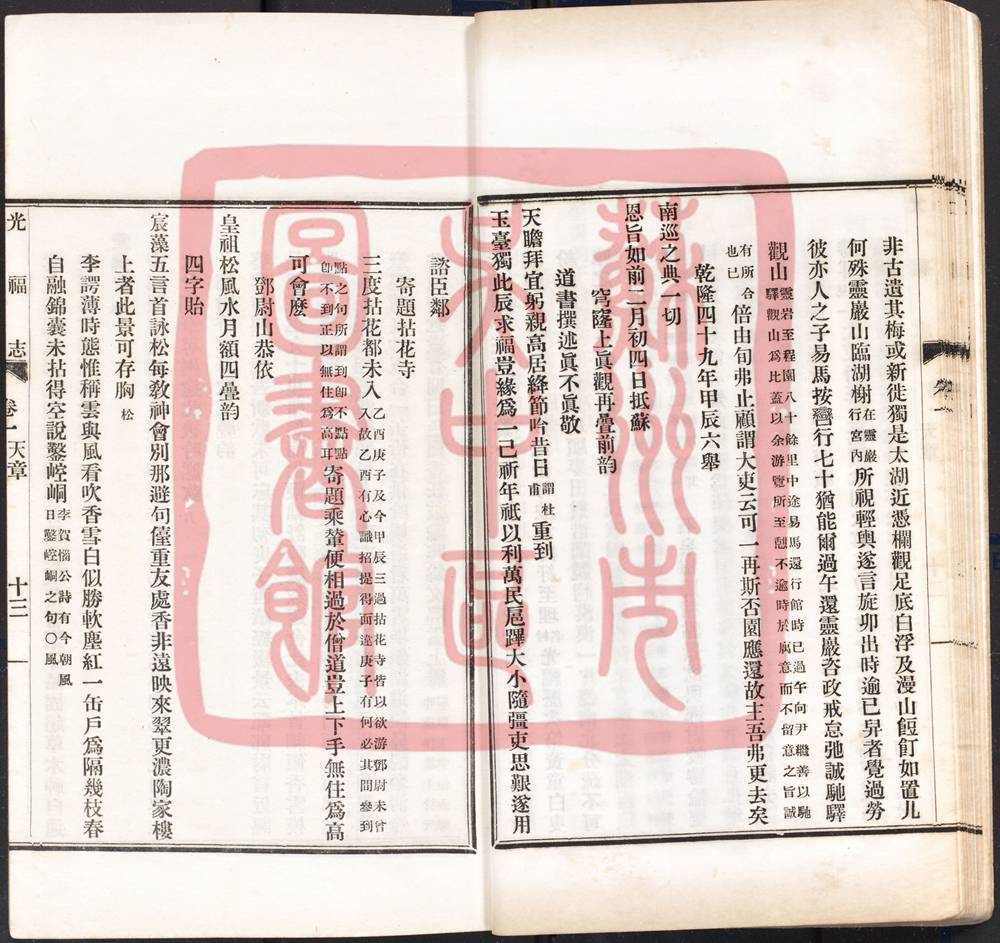 非古遺其梅或新徙獨是太湖近憑欄觀足底白浮及漫山飣如置几
何殊靈巖山臨湖榭在靈巖行宮內所視輕輿遂言旋卯出時逾已舁者覺過勞
彼亦人之子易馬按轡行七十猶能爾過午還靈巖咨政戒怠弛誠馳驛
觀山靈岩至程園八十餘里中途易馬還行館時已過午向尹繼善以馳驛觀山爲比蓋以余游覽所至愬不逾時於寓意而不留意之旨誠
有所合也已倍由旬弗止顧謂大吏云可一再斯否園應還故主吾弗更去矣
乾隆四十九年甲辰六舉
南巡之典一切
恩旨如前二月初四日抵蘇
穹窿上眞觀再疊前韵
道書撰述眞不眞敬
天瞻拜宜躬親高居絳節吟昔日謂杜甫重到
玉臺獨此辰求福豈緣爲一己祈年祇以利萬民扈蹕大小隨彊吏思艱遂用
諮臣鄰
寄題拈花寺
三度拈花都未入乙酉庚子及今甲辰三過拈花寺皆以欲游鄧尉未曾入故乙酉有心識招提得面違庚子有何必其間參到
點之句所謂到卽不點點卽不到正以無住爲高耳寄題乘輦便相過於僧道豈上下手無住爲高
可會麼
鄧尉山恭依
皇祖松風水月額四疊韵
四字貽
宸藻五言首詠松每敎神會別那避句僮重友處香非遠映來翠更濃陶家樓
上者此景可存胸松
李諤薄時態惟稱雲與風看吹香雪白似勝軟塵紅一缶戶爲隔幾枝春
自融錦囊未拈得空說鑿崆峒李賀惱公詩有今朝風日鑿崆峒之句〇風
光福志
卷一天章
十三
蘇州市吳中區圖書館